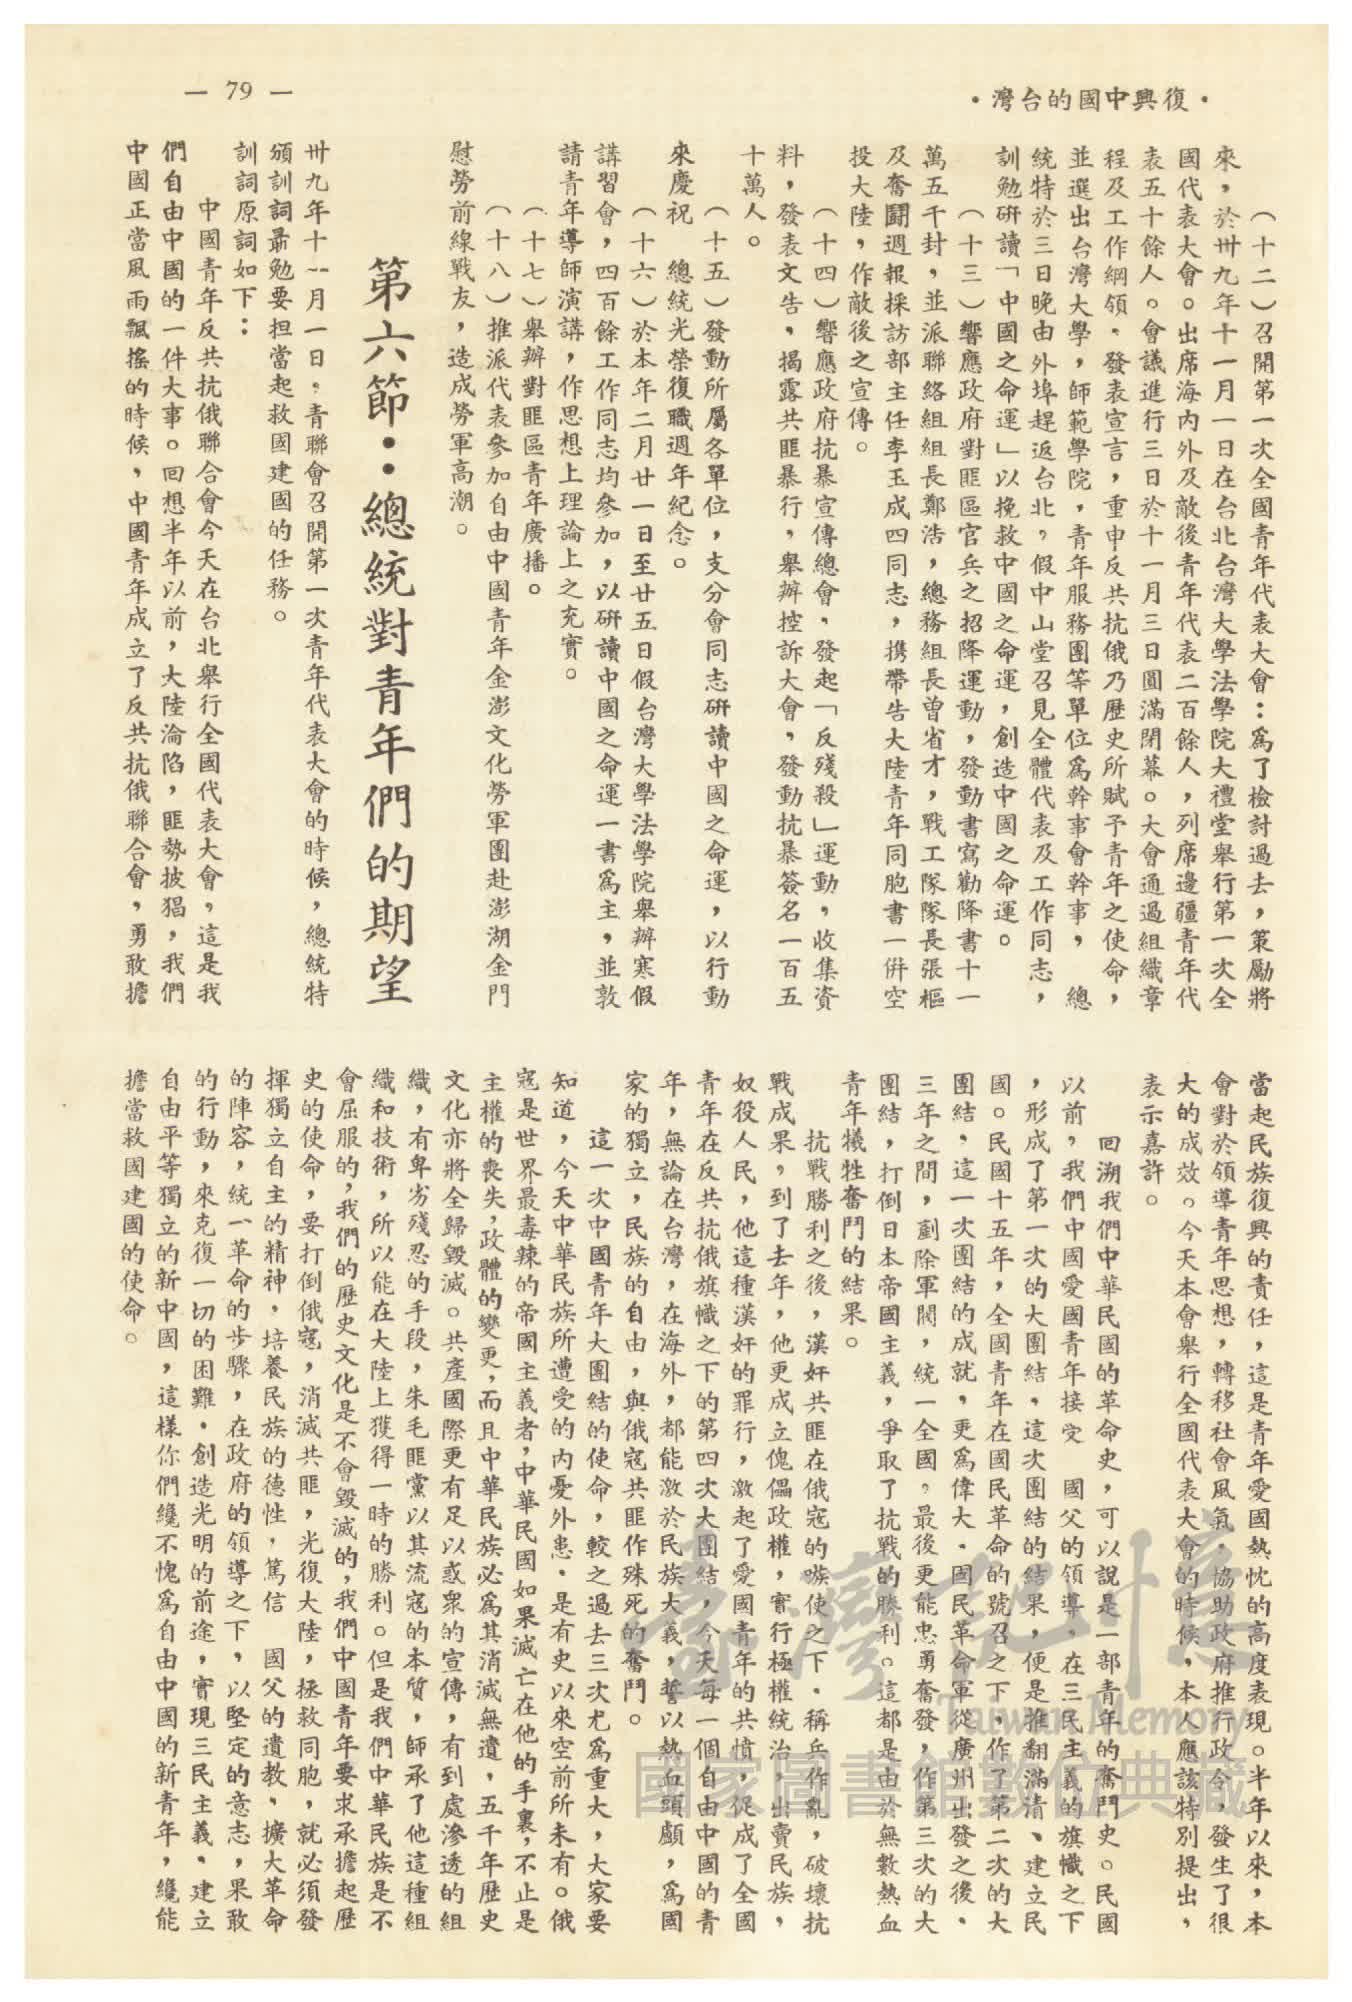 — 79 —
•復興中國的台灣•
(十二)召開第一次全國青年代表大會:爲了檢討過去,策勵將
來,於卅九年十一月一日在台北台灣大學法學院大禮堂舉行第一次全
國代表大會。出席海內外及敵後青年代表二百餘人,列席邊疆青年代
表五十餘人。會議進行三日於十一月三日圓滿閉幕。大會通過組織章
程及工作綱領、發表宣言,重申反共抗俄乃歷史所賦予青年之使命,
並選出台灣大學,師範學院,青年服務團等單位爲幹事會幹事, 總
統特於三日晚由外埠趕返台北,假中山堂召見全體代表及工作同志,
訓勉研讀「中國之命運」以挽救中國之命運,創造中國之命運。
(十三)響應政府對匪區官兵之招降運動,發動書寫勸降書十一
萬五千封,並派聯絡組組長鄭浩,總務組長曾省才,戰工隊隊長張樞
及奮鬪週報採訪部主任李玉成四同志,携帶告大陸青年同胞書一併空
投大陸,作敵後之宣傳。
(十四)響應政府抗暴宣傳總會,發起「反殘殺」運動,收集資
料,發表文告,揭露共匪暴行,舉辦控訴大會,發動抗暴簽名一百五
十萬人。
(十五)發動所屬各單位,支分會同志研讀中國之命運,以行動
來慶祝 總統光榮復職週年紀念。
(十六)於本年二月廿一日至廿五日假台灣大學法學院舉辦寒假
講習會,四百餘工作同志均參加,以研讀中國之命運一書爲主,並敦
請青年導師演講,作思想上理論上之充實。
(十七)舉辦對匪區青年廣播。
(十八)推派代表參加自由中國青年金澎文化勞軍團赴澎湖金門
慰勞前線戰友,造成勞軍高潮。
第六節:總統對青年們的期望
卅九年十一月一日,青聯會召開第一次青年代表大會的時候,總統特
頒訓詞最勉要担當起救國建國的任務。
訓詞原詞如下:
中國青年反共抗俄聯合會今天在台北舉行全國代表大會,這是我
們自由中國的一件大事。回想半年以前,大陸淪陷,匪勢披猖,我們
中國正當風雨飄搖的時候,中國青年成立了反共抗俄聯合會,勇敢擔
當起民族復興的責任,這是青年愛國熱忱的高度表現。半年以來,本
會對於領導青年思想,轉移社會風氣,協助政府推行政令,發生了很
大的成效。今天本會舉行全國代表大會的時候,本人應該特別提出,
表示嘉許。
回溯我們中華民國的革命史,可以說是一部青年的奮鬥史。民國
以前,我們中國愛國青年接受 國父的領導,在三民主義的旗幟之下
,形成了第一次的大團結,這次團結的結果,便是推翻滿清、建立民
國。民國十五年,全國青年在國民革命的號召之下,作了第二次的大
團結、這一次團結的成就,更爲偉大。國民革命軍從廣州出發之後、
三年之間,剷除軍閥,統一全國。最後更能忠勇奮發,作第三次的大
團結,打倒日本帝國主義,爭取了抗戰的勝利。這都是由於無數熱血
青年犧牲奮鬥的結果。
抗戰勝利之後,漢奸共匪在俄寇的嗾使之下,稱兵作亂,破壞抗
戰成果,到了去年,他更成立傀儡政權,實行極權統治,出賣民族,
奴役人民,他這種漢奸的罪行,激起了愛國青年的共憤,促成了全國
青年在反共抗俄旗幟之下的第四次大團結,今天每一個自由中國的青
年,無論在台灣,在海外,都能激於民族大義,誓以熱血頭顱,爲國
家的獨立,民族的自由,與俄寇共匪作殊死的奮鬥。
這一次中國青年大團結的使命,較之過去三次尤爲重大,大家要
知道,今天中華民族所遭受的內憂外患,是有史以來空前所未有。俄
寇是世界最毒辣的帝國主義者,中華民國如果滅亡在他的手裏,不止是
主權的喪失,政體的變更,而且中華民族必爲其消滅無遺,五千年歷史
文化亦將全歸毀滅。共產國際更有足以惑衆的宣傳,有到處滲透的組
織,有卑劣殘忍的手段,朱毛匪黨以其流寇的本質,師承了他這種組
織和技術,所以能在大陸上獲得一時的勝利。但是我們中華民族是不
會屈服的,我們的歷史文化是不會毀滅的,我們中國青年要求承擔起歷
史的使命,要打倒俄寇,消滅共匪,光復大陸,拯救同胞,就必須發
揮獨立自主的精神,培養民族的德性,篤信 國父的遺教、擴大革命
的陣容,統一革命的步驟,在政府的領導之下,以堅定的意志,果敢
的行動,來克復一切的困難,創造光明的前途,實現三民主義、建立
自由平等獨立的新中國,這樣你們纔不愧爲自由中國的新青年,纔能
擔當救國建國的使命。
臺灣記憶
Taiwan Memory
國家圖書館數位典藏